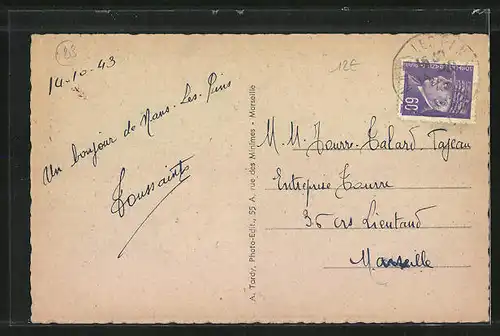 12E
14-10-43
Un bonjour de Mans-Les-Pins
Toussaint
A. Tardy, Photo-Edit., 55 A, rue des Minimes - Marseille
60
M. M. Tourre-Calard Tajeau
Entreprise Tourre
35 crs Lieutaud
Marseille